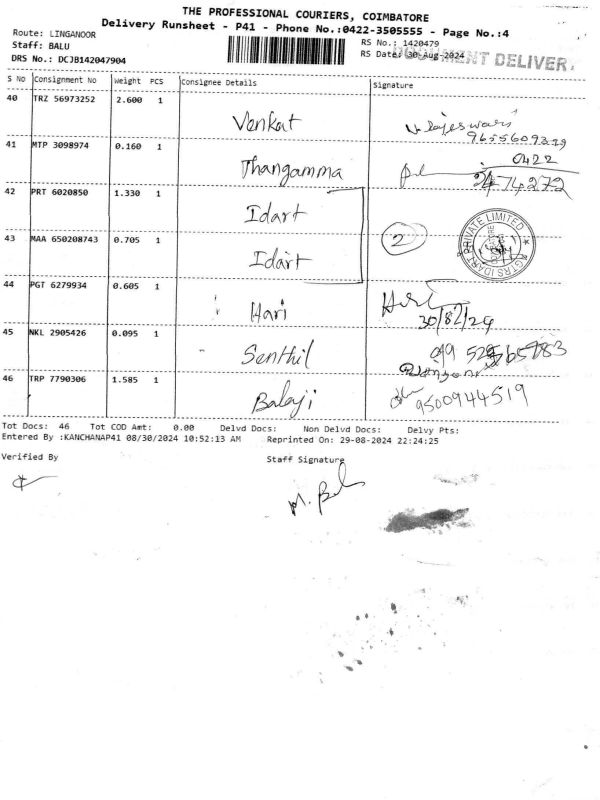 THE PROFESSIONAL COURIERS, COIMBATORE
Delivery Runsheet - P41 - Phone No.:0422-3505555 - Page No.:4
Route: LINGANOOR
Staff: BALU
DRS No.: DCJB142047904
RS No.: 1420479
RS Date: 30-Aug-2024
DOCUMENT DELIVERY
S NO Consignment No Weight PCS Consignee Details Signature
40 TRZ 56973252 2.600 1 Venkat V. Rajeswari
9655609379
41 MTP 3098974 0.160 1 Thangamma 0422
2474272
42 PRT 6020850 1.330 1 Idart
PRIVATE LIMITED
43 MAA 650208743 0.705 1 Idart 2
44 PGT 6279934 0.605 1 Hari Hari
45 NKL 2905426 0.095 1 Senthil
46 TRP 7790306 1.585 1 Balaji 9500944519
Tot Docs: 46 Tot COD Amt: 0.00 Delvd Docs: Non Delvd Docs: Delvy Pts:
Entered By :KANCHANAP41 08/30/2024 10:52:13 AM Reprinted On: 29-08-2024 22:24:25
Verified By Staff Signature
M. Bal